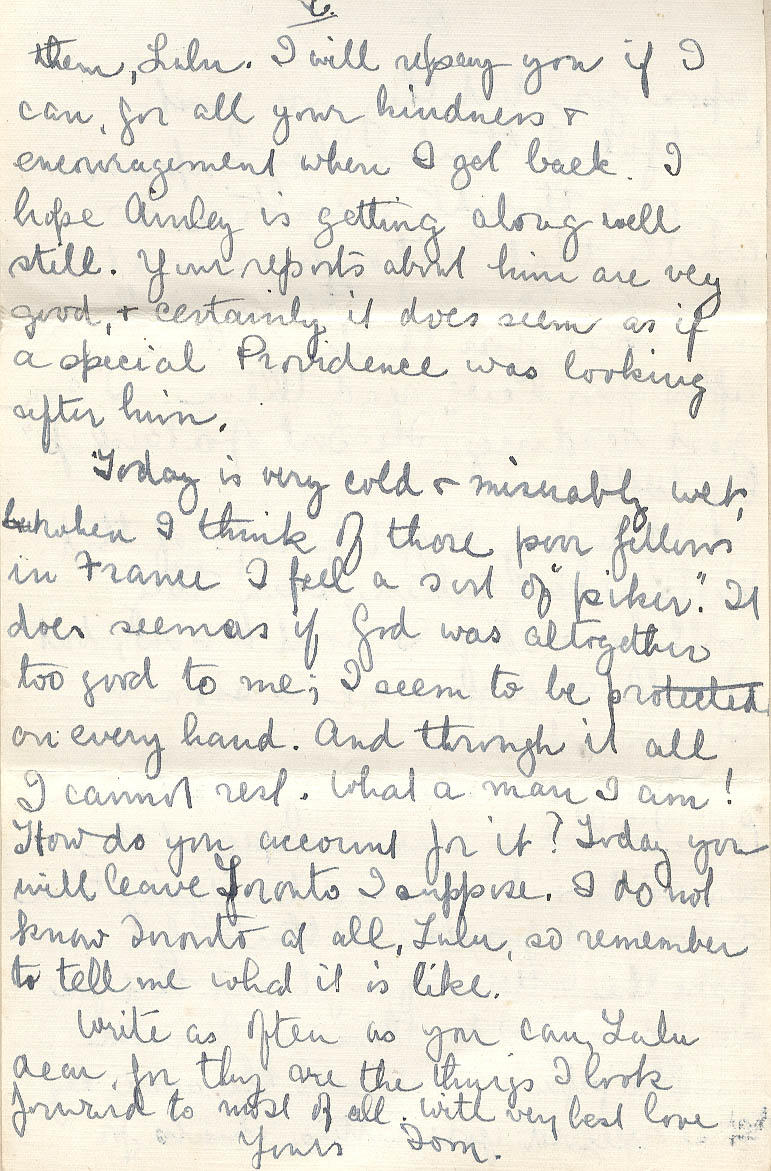 6.
them, Lulu. I will repay you if I
can, for all your kindness &
encouragement when I get back. I
hope Ainley is getting along well
still. Your reports about him are very
good, & certainly it does seem as if
a special Providence was looking
after him.
Today is very cold & miserably wet,
but when I think of those poor fellows
in France I feel a sort of "piker". It
does seem as if God was altogether
too good to me; I seem to be protected
on every hand. And through it all
I cannot rest. What a man I am!
How do you account for it? Today you
will leave Toronto I suppose. I do not
know Toronto at all, Lulu, so remember
to tell me what it is like.
Write as often as you can, Lulu
dear, for they are the things I look
forward to most of all. With very best love
Yours Tom.